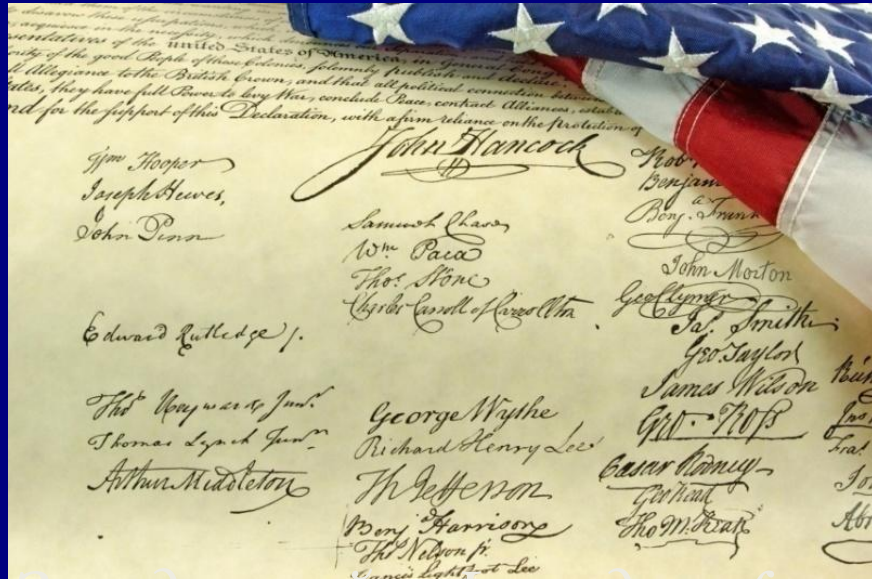 disavow these usurpations, which
acquiesce in the necessity, which denounces our Separation
sentatives of the united States of America, in General Cong
ority of the good People of these Colonies, solemnly publish and declare,
ll Allegiance to the British Crown, and that all political connection between
tates, they have full Power to levy War, conclude Peace, contract Alliances, establ
nd for the support of this Declaration, with a firm reliance on the protection of
John Hancock
Wm Hooper
Joseph Hewes,
John Penn
Edward Rutledge /.
Thos Heyward Junr.
Thomas Lynch Junr.
Arthur Middleton
Samuel Chase
Wm. Paca
Thos. Stone
Charles Carroll of Carrollton
George Wythe
Richard Henry Lee
Th Jefferson
Benj Harrison
Thos Nelson jr.
Francis Lightfoot Lee
Rob
Benjam
Benj. Frank
John Morton
Geo Clymer
Jas. Smith
Geo. Taylor
James Wilson
Geo. Ross
Caesar Rodney
Geo Read
Tho M:Kean